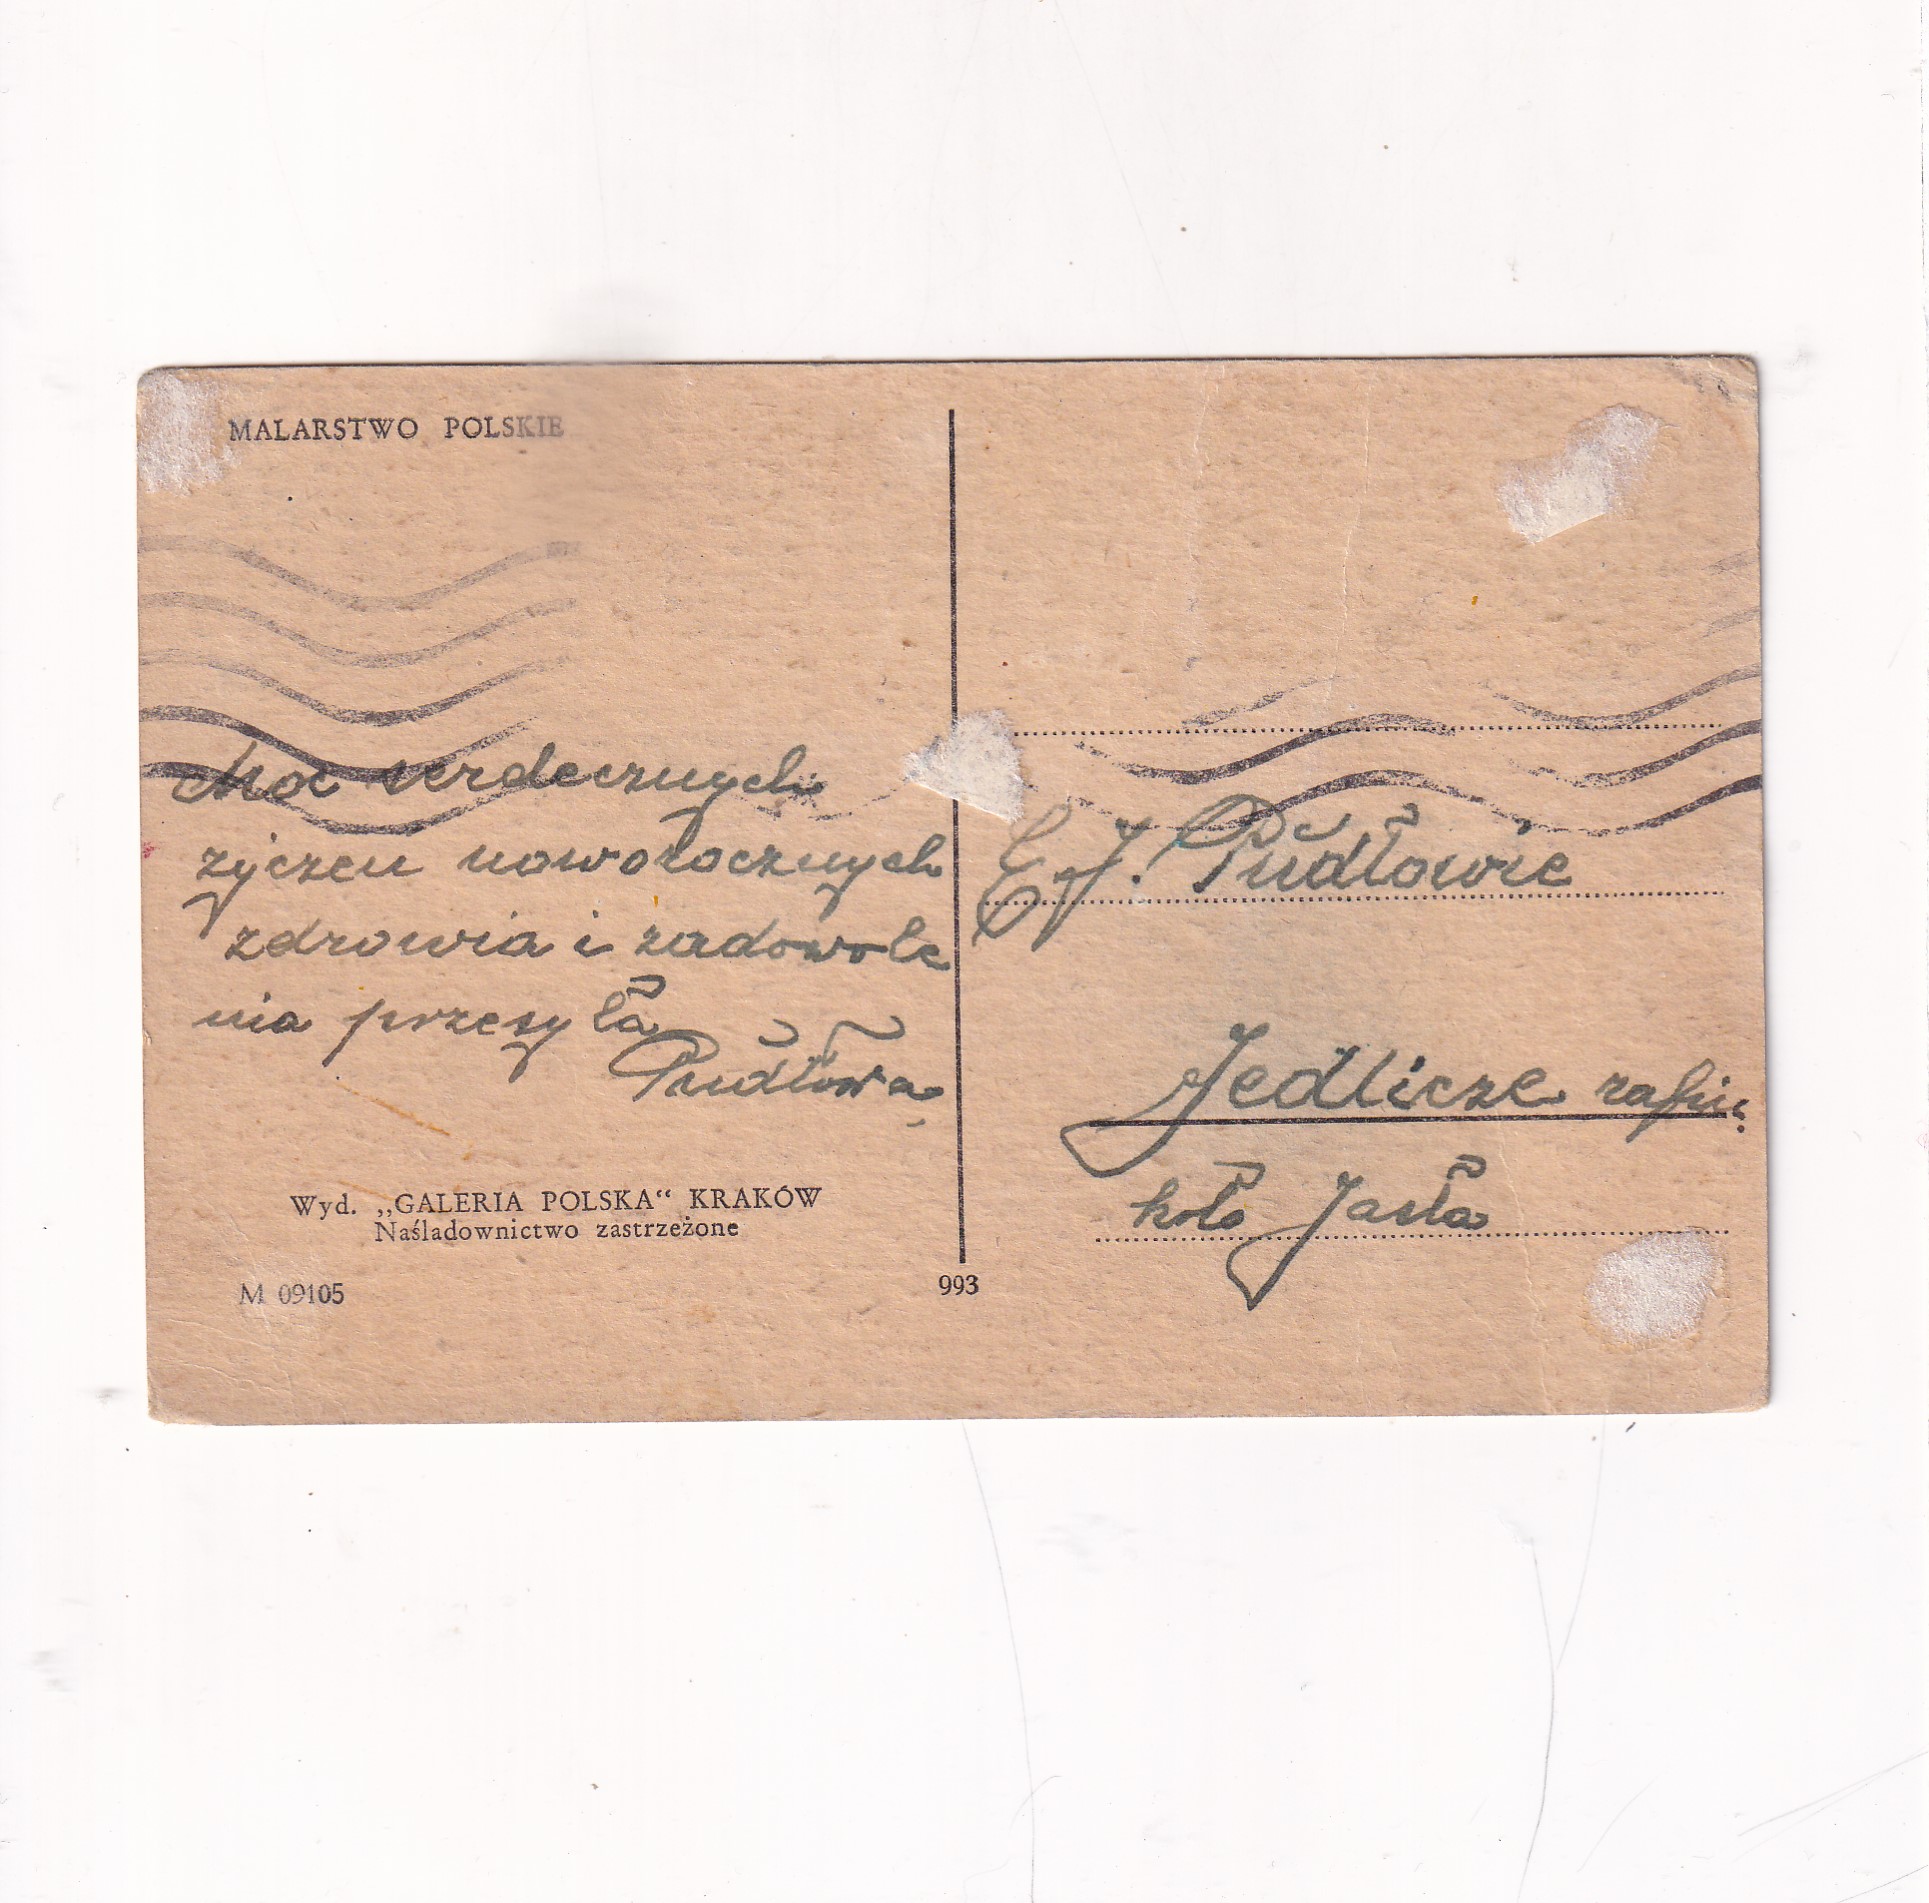 MALARSTWO POLSKIE
Moc serdecznych
życzeń noworocznych
zdrowia i zadowole
nia przesyła
Pudłowa
Wyd. „GALERIA POLSKA“ KRAKÓW
Naśladownictwo zastrzeżone
M 09105
993
E J. Pudłowie
Jedlicze rafin.
koło Jasła